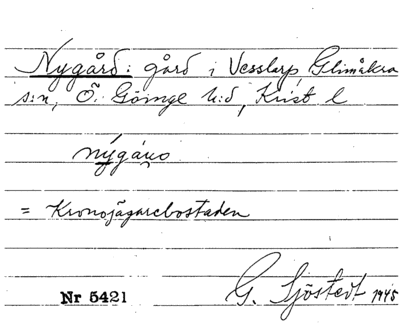 Nygård: gård i Vesslarp, Glimåkra
s:n, Ö. Göinge h:d, Krist l
= Kronojägarebostaden
G. Sjöstedt 1945
Nr 5421